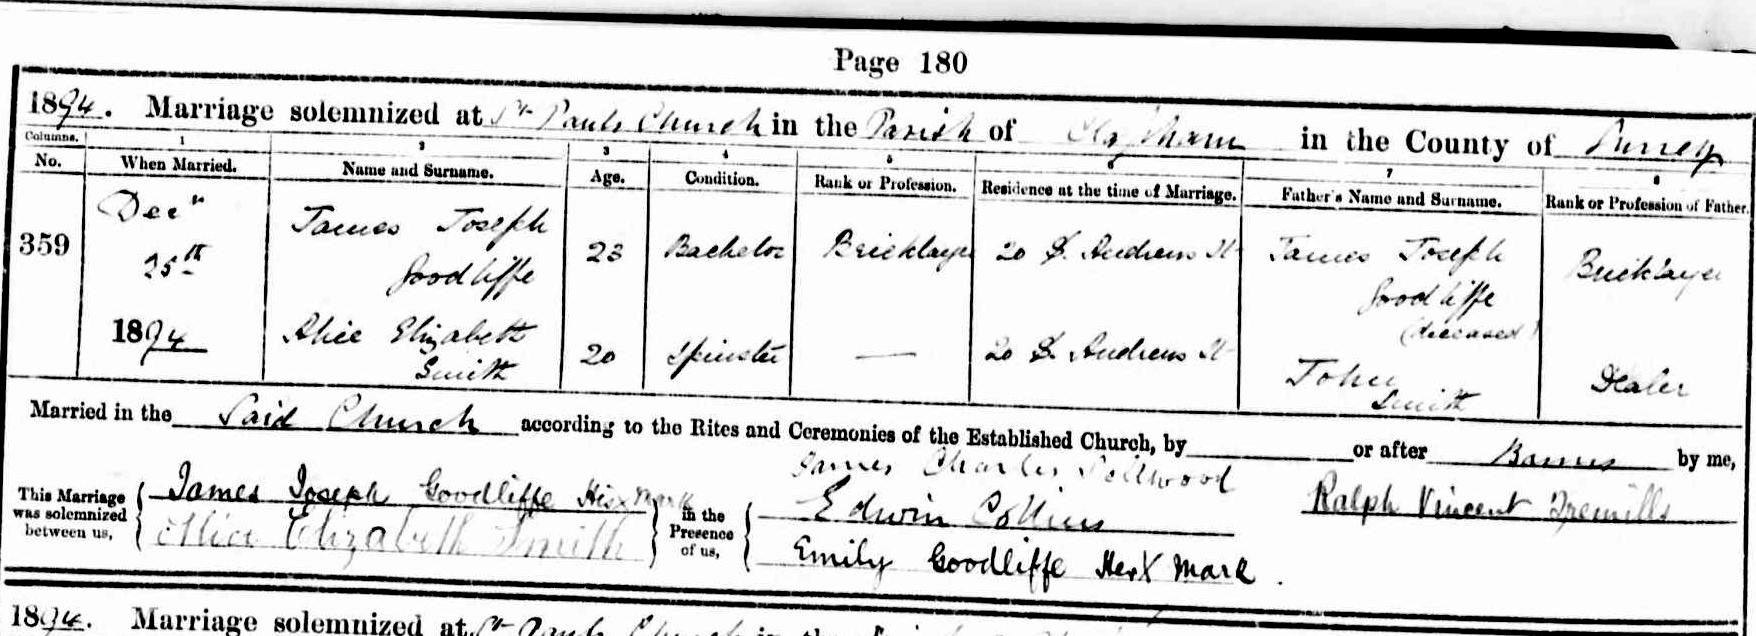 Page 180
1894. Marriage solemnized at St. Pauls Church in the Parish of Clapham in the County of Surrey
Columns. 1 2 3 4 5 6 7 8
No. When Married. Name and Surname. Age. Condition. Rank or Profession. Residence at the time of Marriage. Father's Name and Surname. Rank or Profession of Father.
359 Decr 25th 1894 James Joseph Goodliffe 23 Bachelor Bricklayer 20 St. Andrews St James Joseph Goodliffe (deceased) Bricklayer
Alice Elizabeth Smith 20 Spinster — 20 St. Andrews St John Smith Dealer
Married in the Said Church according to the Rites and Ceremonies of the Established Church, by or after Banns by me,
This Marriage was solemnized between us, James Joseph Goodliffe His X Mark
Alice Elizabeth Smith
in the Presence of us, James Charles
Edwin Collins
Emily Goodliffe Her X Mark.
Ralph Vincent
1894. Marriage solemnized at St Pauls Church in the